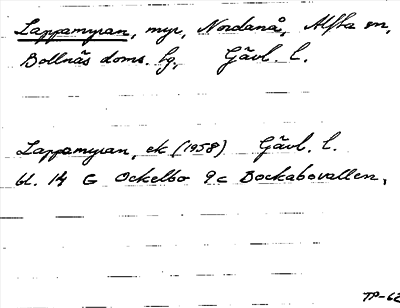 Lappamyran, myr, Nordanå, Alfta sn,
Bollnäs doms. lg, Gävl. l.
Lappamyran, ek (1958) Gävl. l.
bl. 14 G Ockelbo 9c Bockabovallen,
TP-62